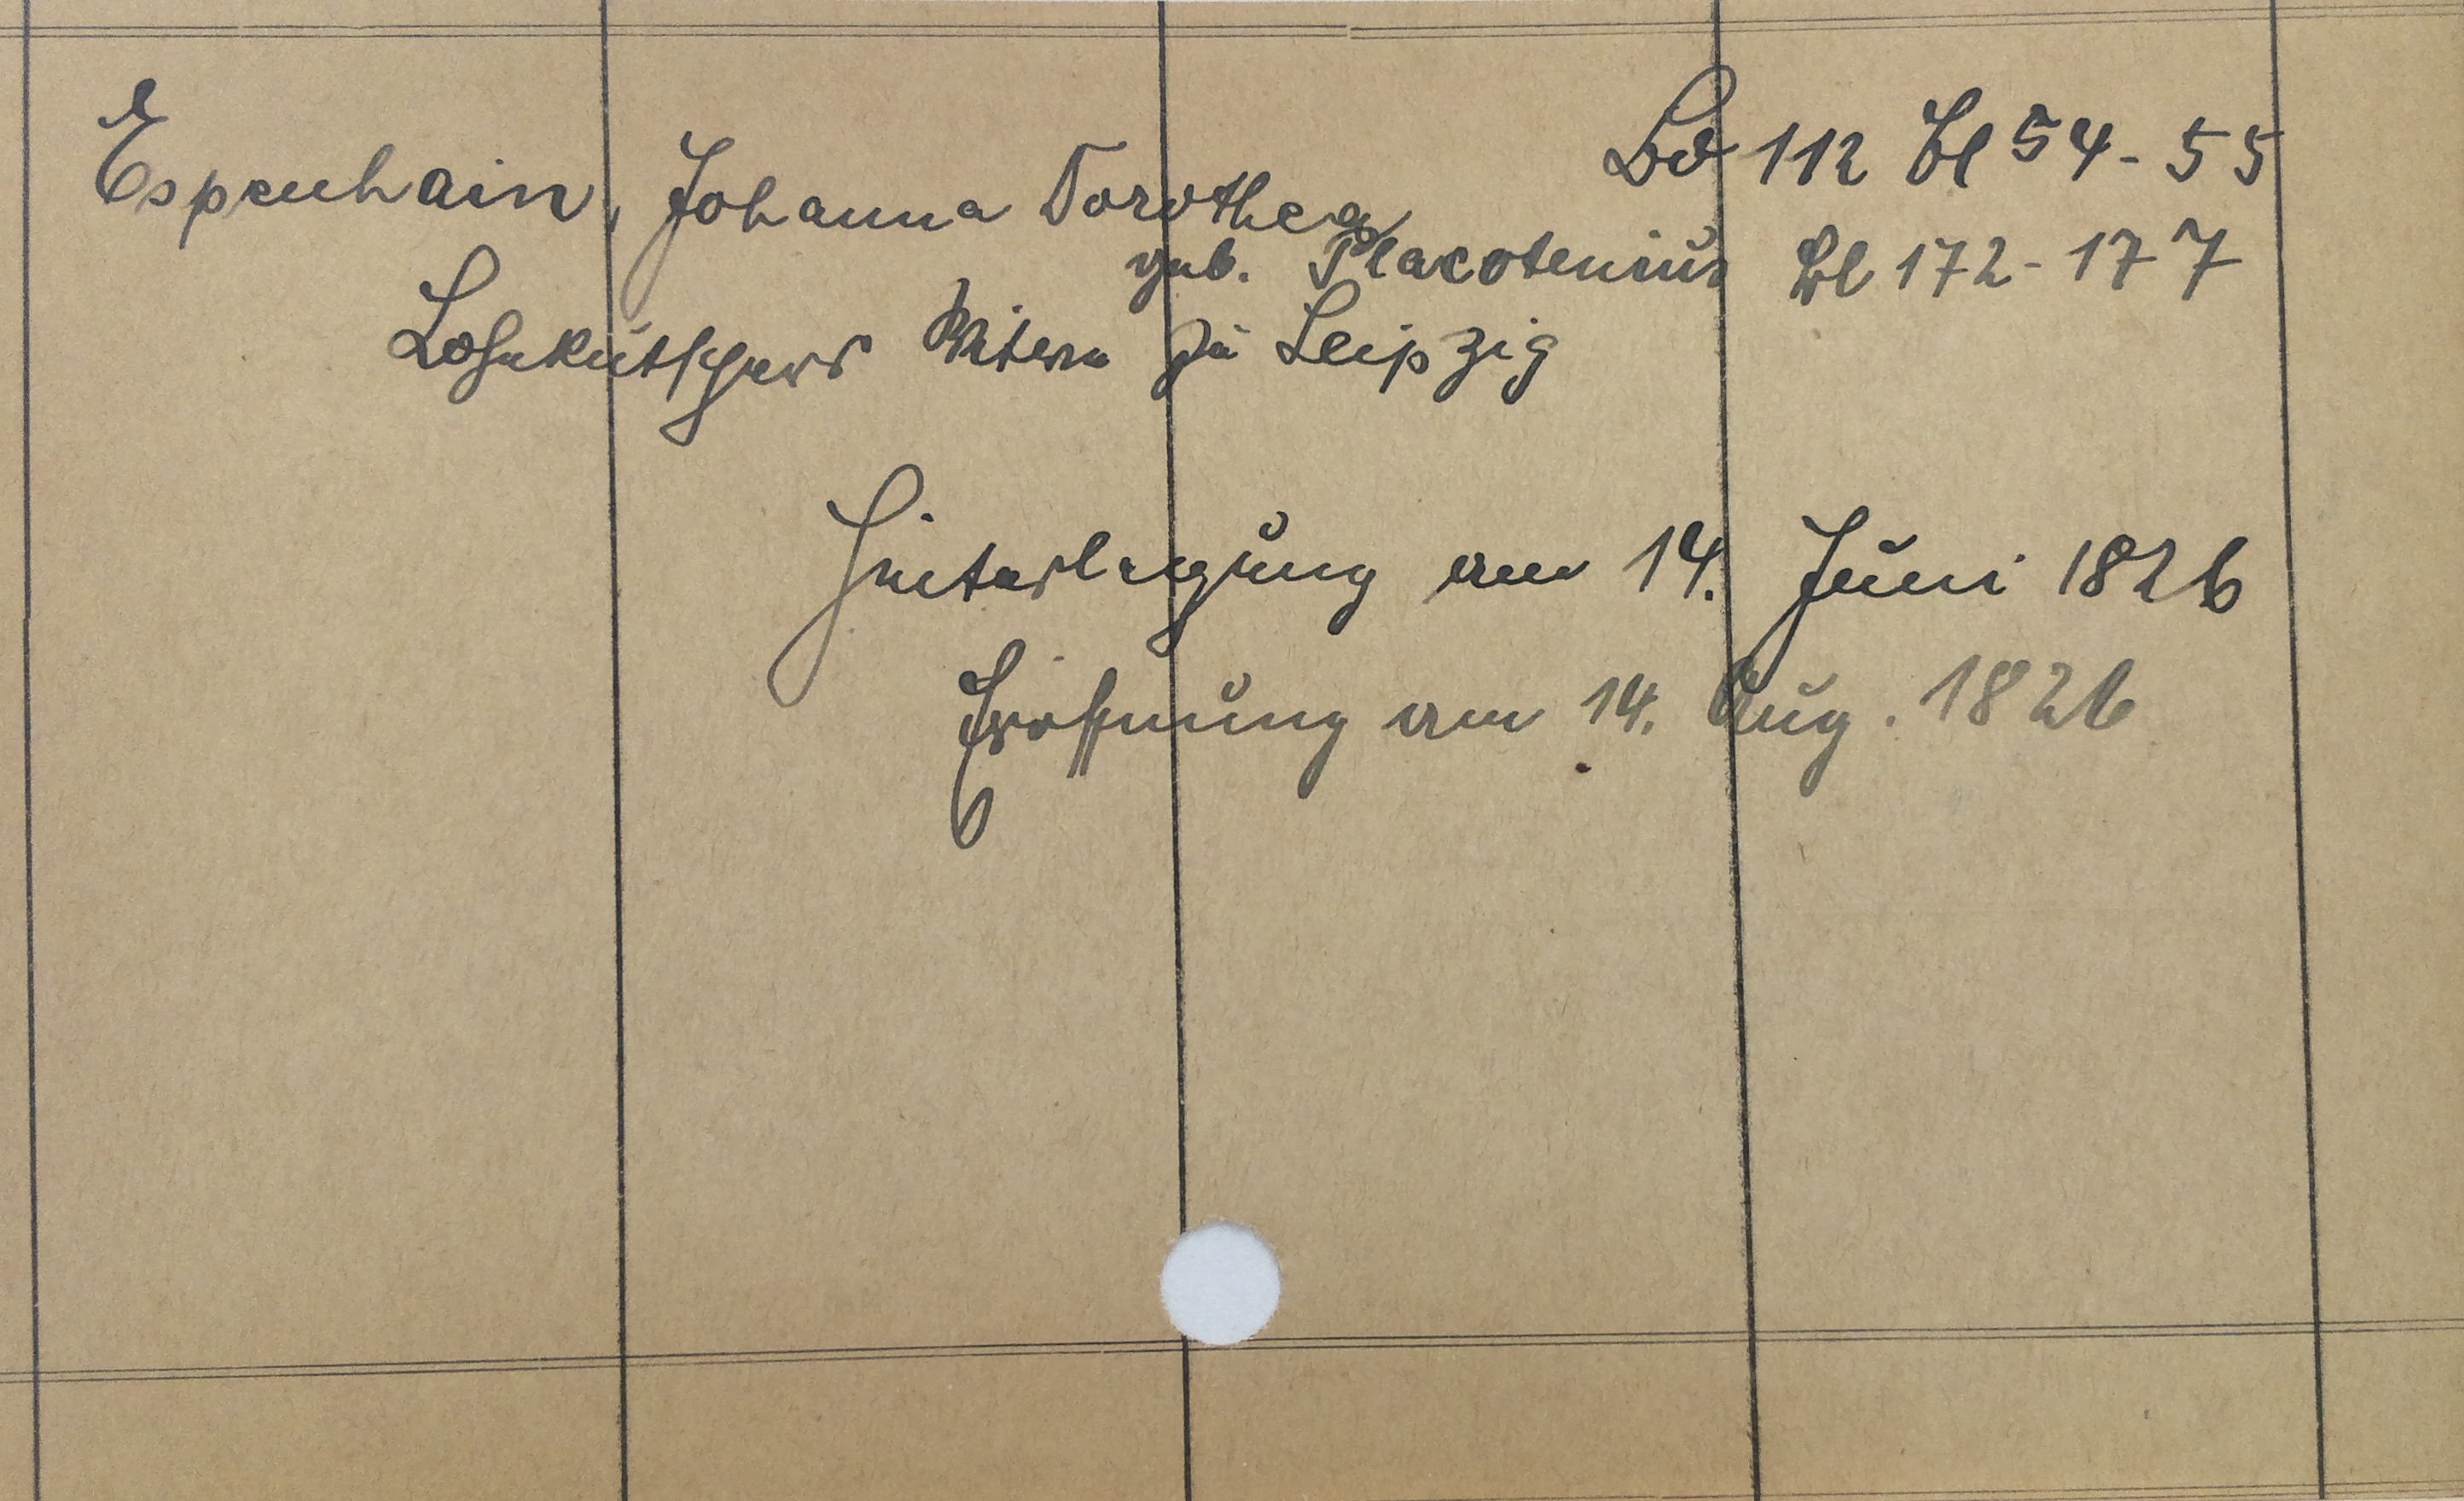 Bd 112 Bl 54-55
Espenhain, Johanna Dorothea
geb. Placotenius Bl 172-177
Lohnkutschers Witwe zu Leipzig
Hinterlegung am 14. Juni 1826
Eröffnung am 14. Aug. 1826